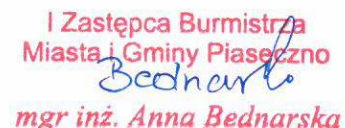 I Zastępca Burmistrza
Miasta i Gminy Piaseczno
mgr inż. Anna Bednarska